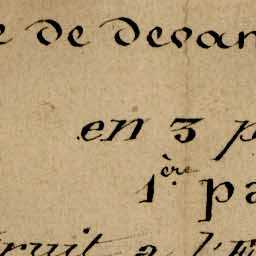 e de devan
en 3 p
1ère pa
truit a l'E